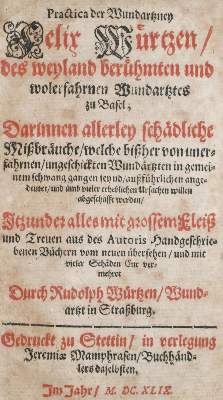 Practica der Wundartzney
Felix Würtzen/
des weyland berühmten und
wolerfahrnen Wundartztes
zu Basel,
Darinnen allerley schädliche
Mißbräuche/welche bißher von uner-
fahrnen/ungeschickten Wundärtzten in gemei-
nem schwang gangen seynd, außführlichen ange-
deutet/und umb vieler erheblichen Ursachen willen
abgeschafft werden/
Jtzunder alles mit grossem Fleiß
und Treuen aus des Autoris Handgeschrie-
benen Büchern vom neuen übersehen/und mit
vieler Schäden Cur ver-
mehret
Durch Rudolph Würtzen/Wund-
artzt in Straßburg.
Gedruckt zu Stettin/in verlegung
Jeremiæ Mamphrasen/Buchhänd-
lers daselbsten.
Im Jahr/ M. DC. XLIX.